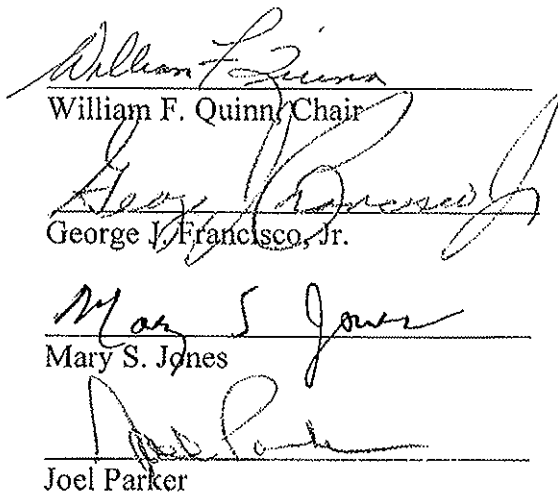 William F Quinn
William F. Quinn, Chair
George J Francisco Jr
George J. Francisco, Jr.
Mary S Jones
Mary S. Jones
Joel Parker
Joel Parker